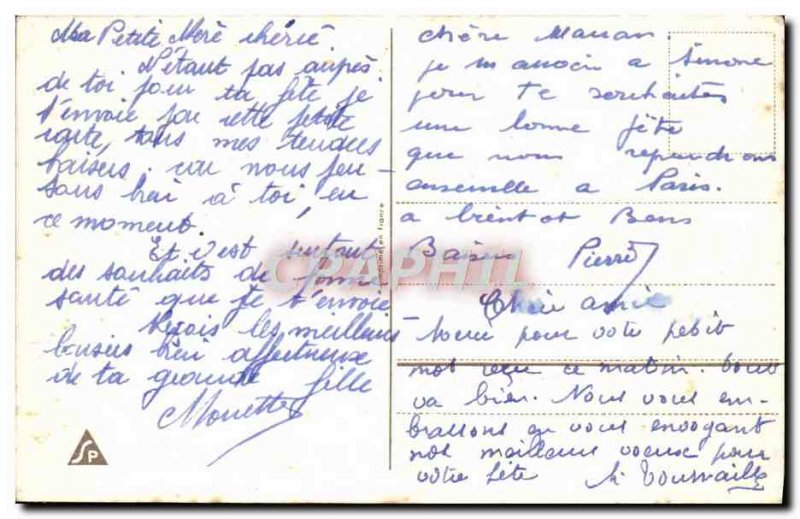 Ma Petite Mère chérie.
N'étant pas auprès
de toi pour ta fête je
t'envoie sur cette petite
carte, tous mes tendres
baisers. car nous pen-
sons bien à toi, en
ce moment.
Et c'est surtout
des souhaits de bonne
santé que je t'envoie
Reçois les meilleurs
baisers bien affectueux
de ta grande fille
Mouette
SP
Imprimé en France
CPAPHIL
chère Maman.
je m'associe a Simone
pour te souhaiter
une bonne fête
que nous reprendrons
ensemble a Paris.
a bientot Bons
Baisers Pierre
Chère amie
Merci pour votre petit
mot reçu ce matin. Tout
va bien. Nous vous em-
brassons en vous envoyant
nos meilleurs voeux pour
votre fête